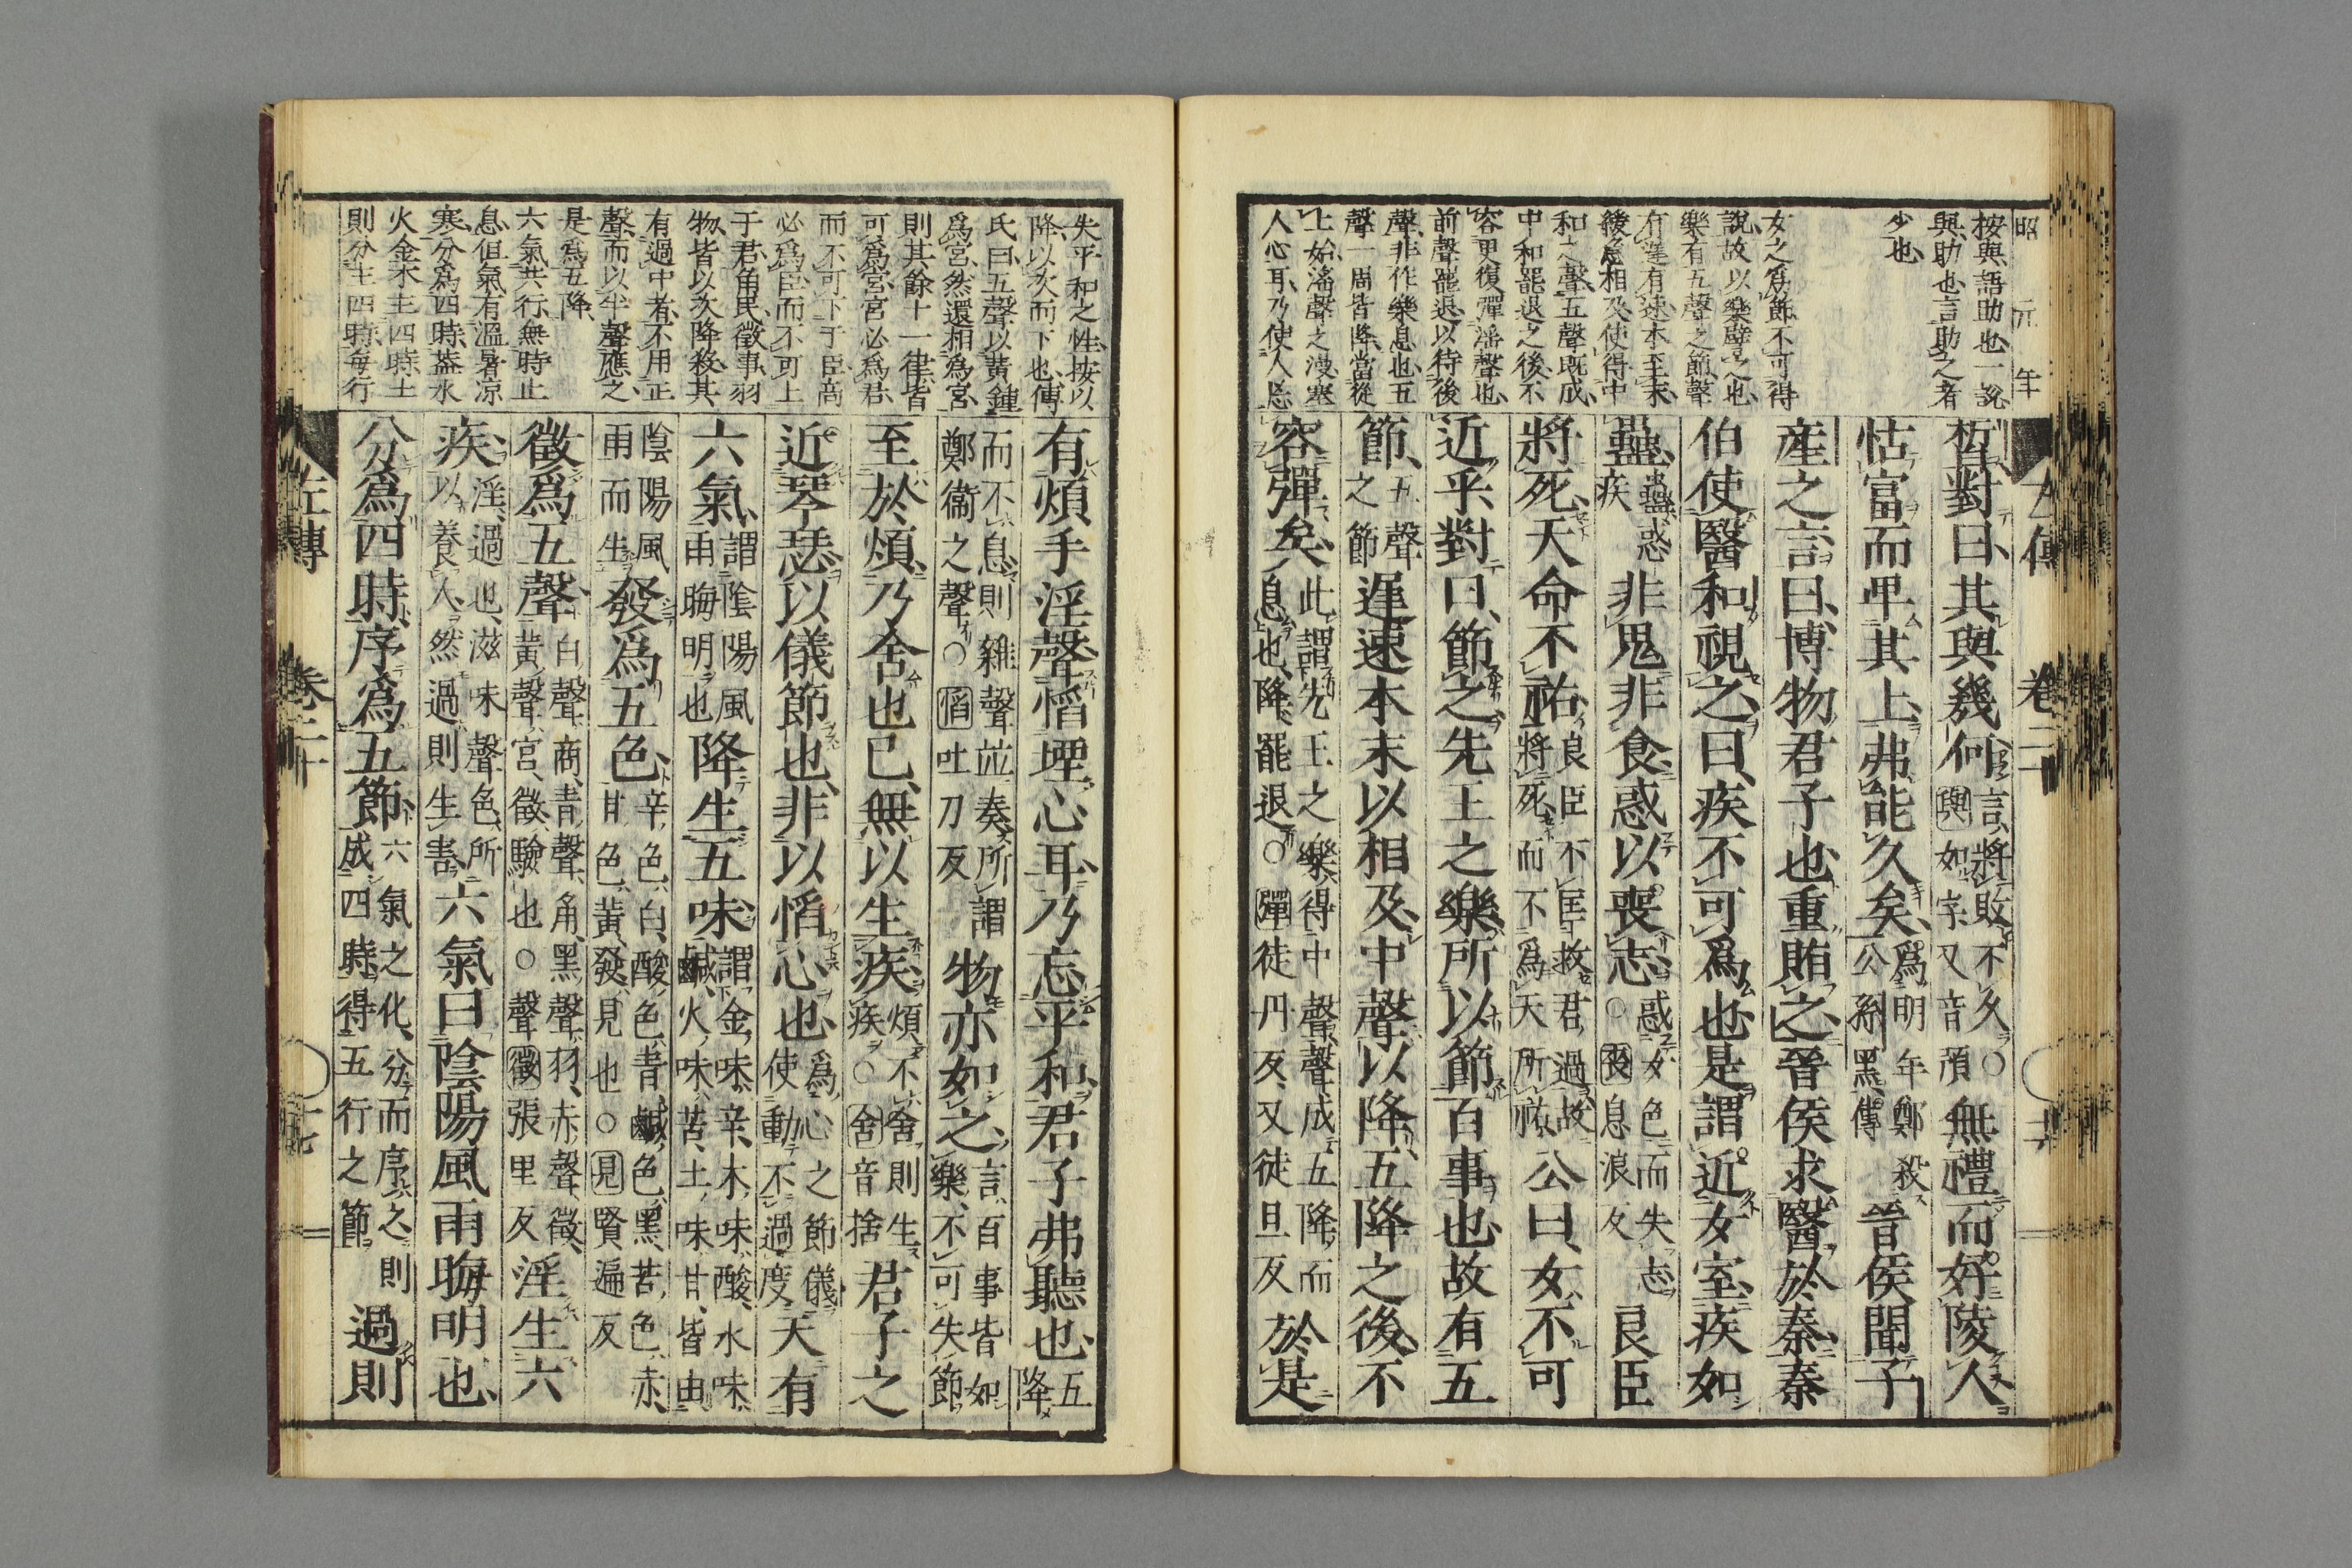 昭 元 年
按與語助也一說
與助也言助之者
少也
女之爲節不可得
說故以樂譬之也
樂有五聲之節聲
有遲有速本至末
緩急相及使得中
和之聲五聲既成
中和罷退之後不
容更復彈滛聲也
前聲罷退以待後
聲非作樂息也五
聲一周皆降當從
上始滛聲之漫塞
人心耳乃使人忘
左傳 卷二十
哲對曰其與幾何言將敗不久○與如字又音預無禮而好陵人
怙富而卑其上弗能久矣爲明年鄭殺公孫黑傳晉侯聞子
產之言曰博物君子也重賄之晉侯求醫於秦秦
伯使醫和視之曰疾不可爲也是謂近女室疾如
蠱蠱惑疾非鬼非食惑以喪志惑女色而失志○喪息浪反良臣
將死天命不祐良臣不匡救君過故將死而不爲天所祐公曰女不可
近乎對曰節之先王之樂所以節百事也故有五
節五聲之節遲速本末以相及中聲以降五降之後不
容彈矣此謂先王之樂得中聲聲成五降而息也降罷退○彈徒丹反又徒旦反於是
失平和之性按以
降以次而下也傅
氏曰五聲以黃鍾
爲宮然還相爲宮
則其餘十一律皆
可爲宮宮必爲君
而不可下于臣商
必爲臣而不可上
于君角民徵事羽
物皆以次降殺其
有過中者不用正
聲而以半聲應之
是爲五降
六氣共行無時止
息但氣有溫暑凉
寒分爲四時葢水
火金木主四時土
則分主四時每行
有煩手淫聲慆堙心耳乃忘平和君子弗聽也五降
而不息則雜聲並奏所謂鄭衞之聲○慆吐刀反物亦如之言百事皆如樂不可失節
至於煩乃舍也已無以生疾煩不舍則生疾○舍音捨君子之
近琴瑟以儀節也非以慆心也爲心之節儀使動不過度天有
六氣謂陰陽風雨晦明也降生五味謂金味辛木味酸水味鹹火味苦土味甘皆由
陰陽風雨而生發爲五色辛色白酸色青鹹色黑苦色赤甘色黃發見也○見賢遍反
徵爲五聲白聲商青聲角黑聲羽赤聲徵黃聲宮徵驗也○聲徵張里反淫生六
疾淫過也滋味聲色所以養人然過則生害六氣曰陰陽風雨晦明也
分爲四時序爲五節六氣之化分而序之則成四時得五行之節過則
左傳 卷二十 十七